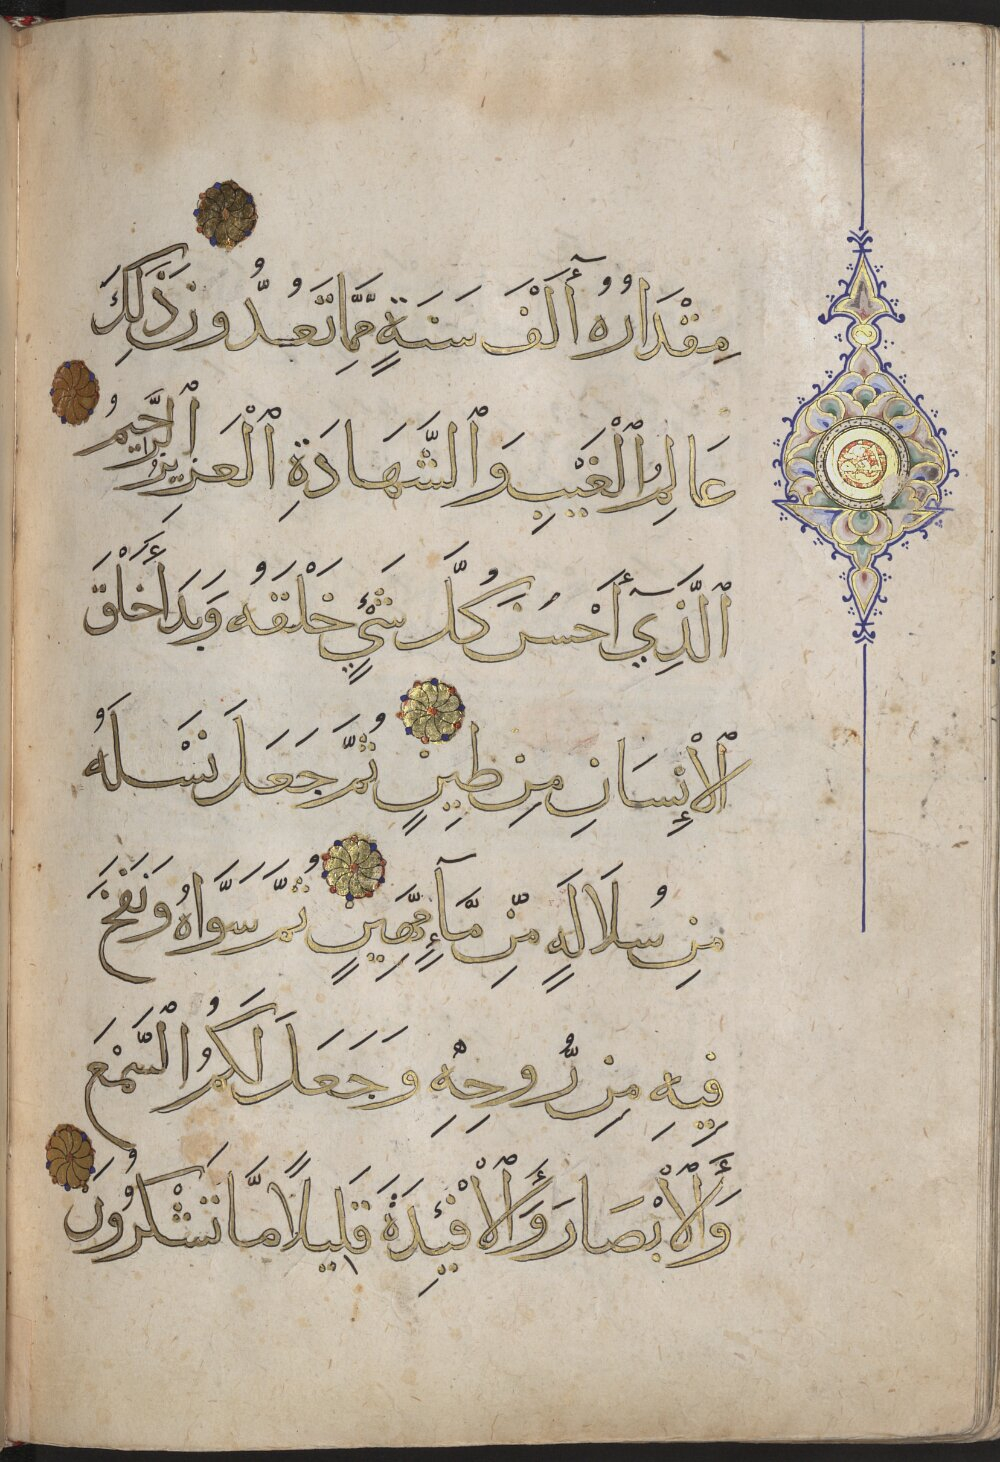 مِقْدَارُهُ أَلْفَ سَنَةٍ مِّمَّا تَعُدُّونَ ذَٰلِكَ
عَالِمُ ٱلْغَيْبِ وَٱلشَّهَادَةِ ٱلْعَزِيزُ ٱلرَّحِيمُ
ٱلَّذِيٓ أَحْسَنَ كُلَّ شَيْءٍ خَلَقَهُ وَبَدَأَ خَلْقَ
ٱلْإِنسَانِ مِن طِينٍ ثُمَّ جَعَلَ نَسْلَهُ
مِن سُلَالَةٍ مِّن مَّآءٍ مَّهِينٍ ثُمَّ سَوَّاهُ وَنَفَخَ
فِيهِ مِن رُّوحِهِ وَجَعَلَ لَكُمُ ٱلسَّمْعَ
وَٱلْأَبْصَارَ وَٱلْأَفْئِدَةَ قَلِيلًا مَّا تَشْكُرُونَ